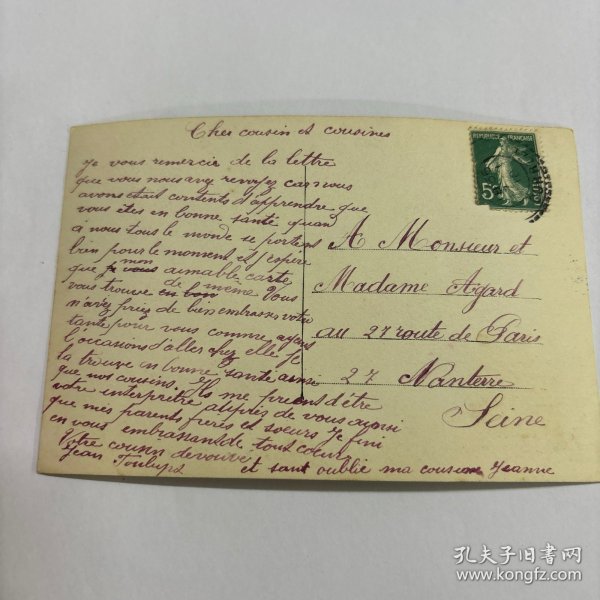 Cher cousin et cousines
je vous remercie de la lettre
que vous nous avez envoyez car nous
avons était contents d'apprendre que
vous êtes en bonne santé quan
a nous tous le monde se portent
bien pour le moment et j'espère
que mon aimable carte
vous trouve de même Vous
n'avez pues de bien embrasser votre
tante pour vous comme ayant
l'occasions d'aller chez elle je
la trouve en bonne santé ainsi
que nos cousins. Ils me prient d'être
votre interprètre auprès de vous ainsi
que mes parents frères et soeurs Je fini
en vous embrassant de tout coeur
Votre cousin devoué
Jean
et sant oublié ma cousine Jeanne
A Monsieur et
Madame Agard
au 27 route de Paris
27 Nanterre
Seine
REPUBLIQUE FRANÇAISE
5c
孔夫子旧书网
www.kongfz.com